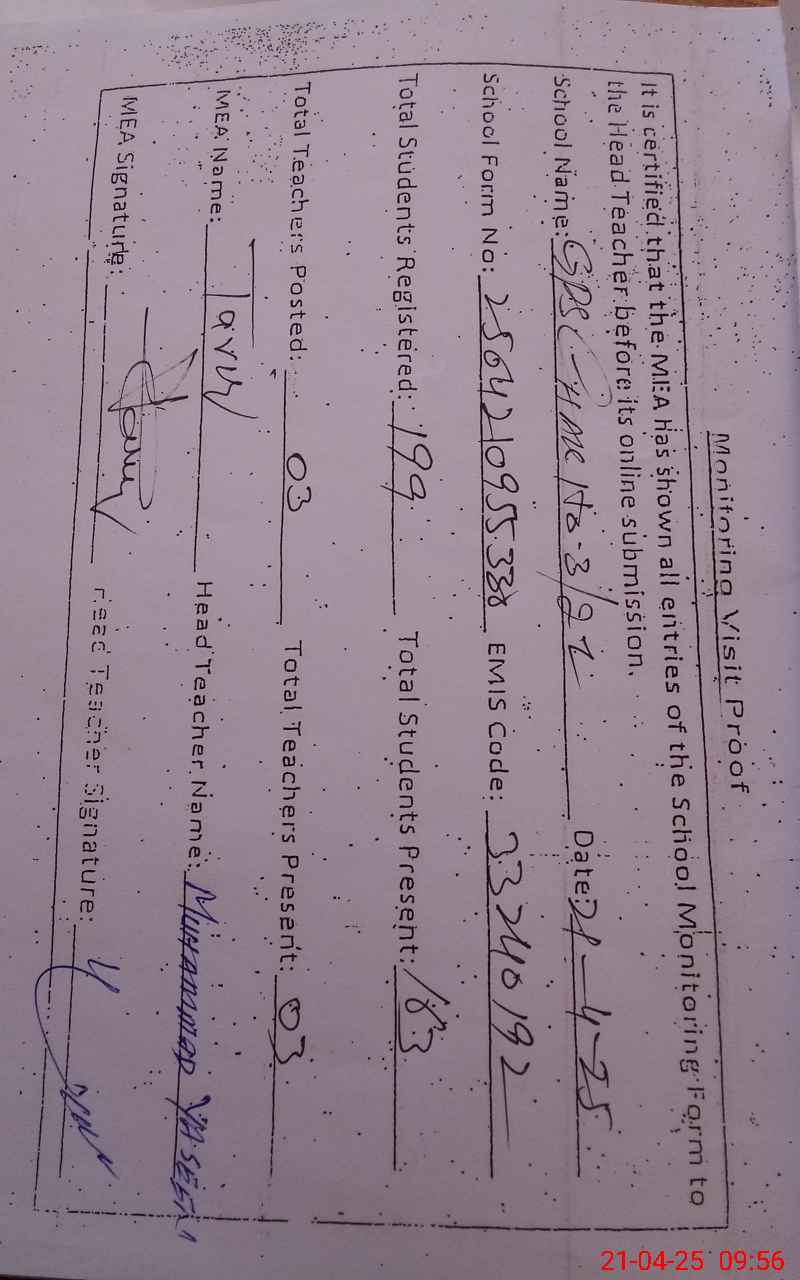 Monitoring Visit Proof
It is certified that the MEA has shown all entries of the School Monitoring Form to
the Head Teacher before its online submission.
School Name: Date: 21-4-25
School Form No: EMIS Code: 33240192
Total Students Registered: 199 Total Students Present: 183
Total Teachers Posted: 03 Total Teachers Present: 03
MEA Name: Head Teacher Name: MUHAMMAD YASEEN
MEA Signature: Head Teacher Signature:
21-04-25 09:56